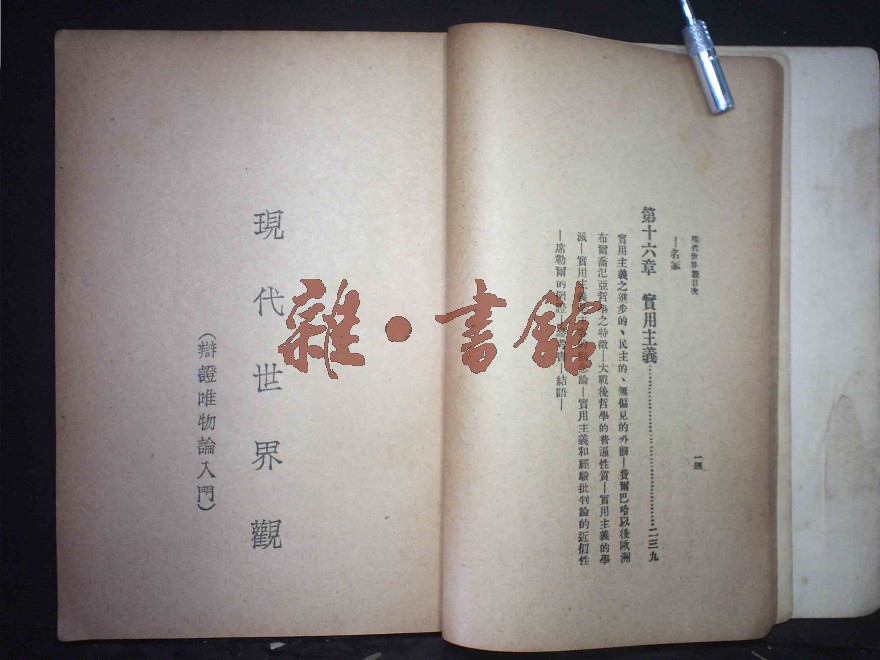 現代世界觀目次
—名家
第十六章　實用主義……………………二三九
實用主義之進步的、民主的、無偏見的外觀—費爾巴哈以後歐洲
布爾喬亞哲學之特徵—大戰後哲學的普遍性質—實用主義的學
派—實用主義論—實用主義和經驗批判論的近似性
—席勒爾的例證—結語—
一四
現代世界觀
（辯證唯物論入門）
雜·書館